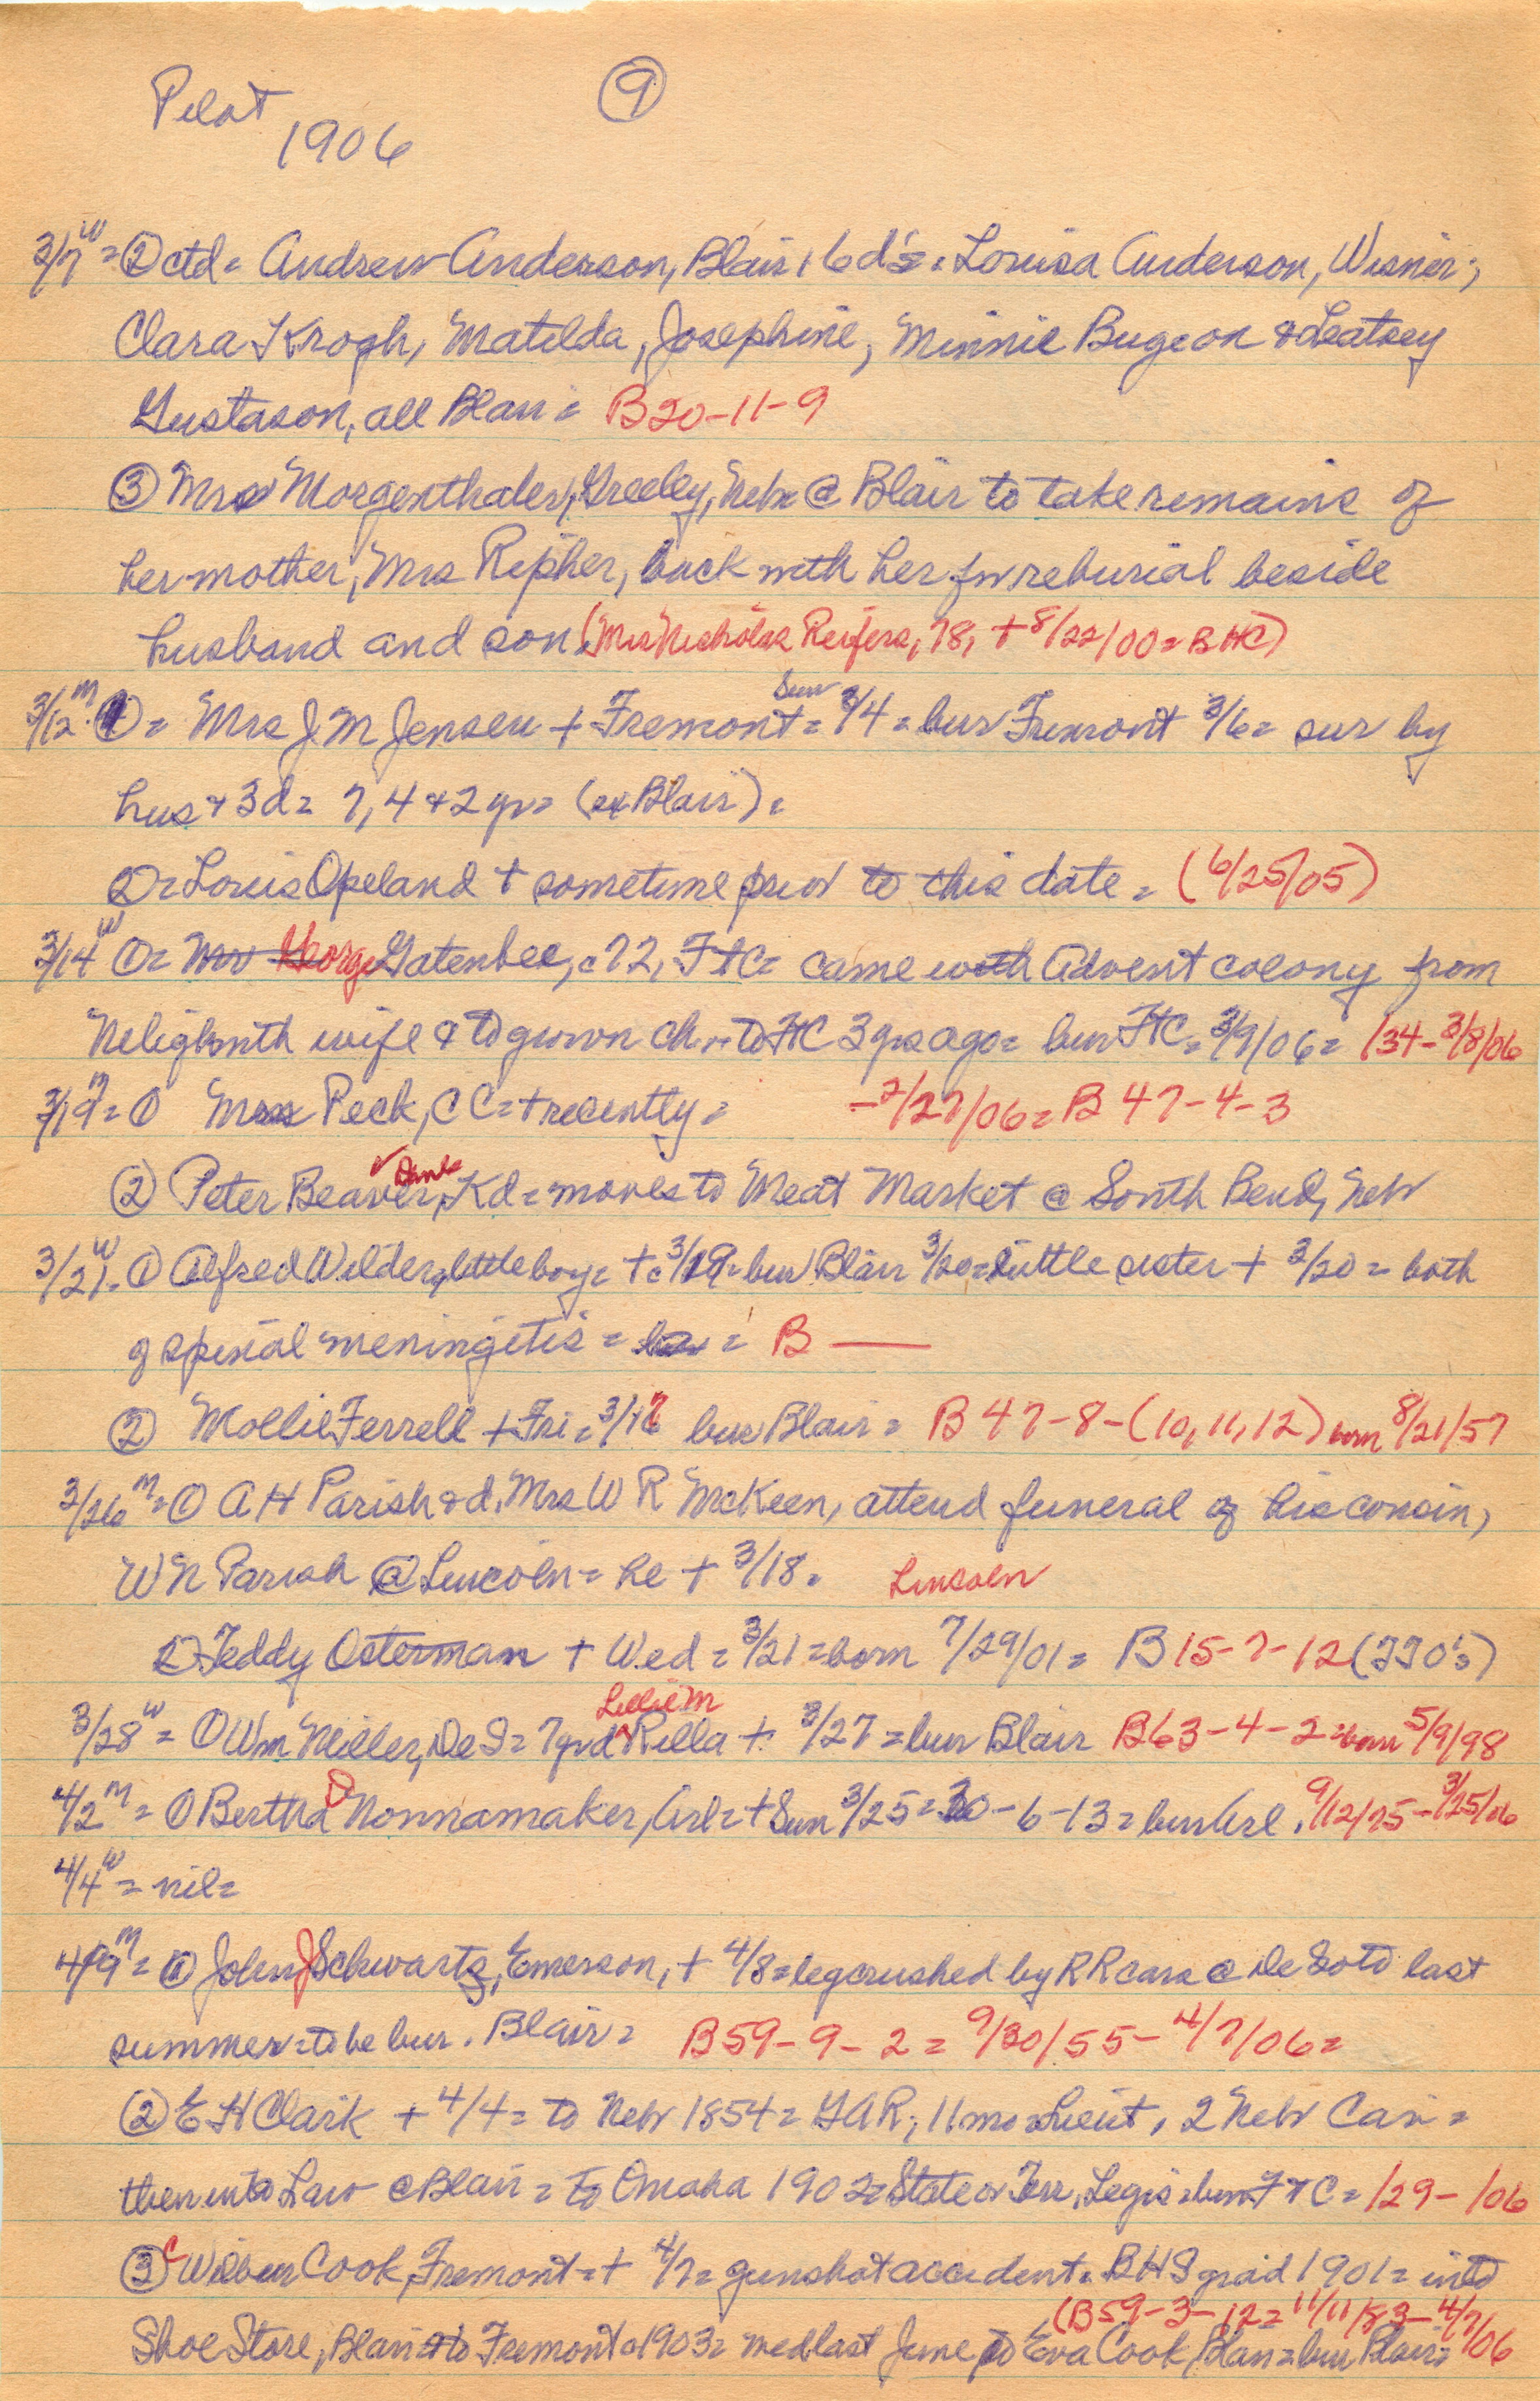 Pilot
9
1906
3/7 W = ② ctd = Andrew Anderson, Blair, 6 d's = Louisa Anderson, Wisner;
Clara Krogh, Matilda, Josephine, Minnie Bugeon &
Gustason, all Blair = B20-11-9
③ Mrs Morgenthaler, Greeley, Nebr @ Blair to take remains of
her mother, Mrs Ripher, back with her for reburial beside
husband and son (Mrs Nicholas Reifers, 78, + 8/22/00 = BHC)
3/12 M ① = Mrs J M Jensen + Fremont = Sun 3/4 = bur Fremont 3/6 = sur by
hus & 3d = 7, 4 & 2 yr = (ex Blair) =
② = Louis Opeland + sometime prior to this date = (6/25/05)
3/14 W ① = Mr George Gatenbee, c 72, FtC = came with Advent colony from
Neligh with wife & to grown ch. to FtC 3 yrs ago = bur FtC = 3/9/06 = /34 - 3/8/06
3/19 M = ① Mrs Peck, CC = + recently = - 2/27/06 = B 47-4-3
② Peter Beaver, Kd = moves to Meat Market @ South Bend, Nebr
3/21 W = ① Alfred Wilder, little boy = + c 3/19 = bur Blair 3/20 = little sister + 3/20 = both
of spinal meningitis = = B —
② Mollie Ferrell + Fri = 3/16 bur Blair = B 47-8-(10,11,12) born 8/21/57
3/26 M = ① A H Parish & d, Mrs W R McKeen, attend funeral of his cousin,
W N Parish @ Lincoln = he + 3/18. Lincoln
② Teddy Osterman + Wed = 3/21 = born 7/29/01 = B 15-7-12 (TJO's)
3/28 W = ① Wm Miller, DeS = 7 yr d Lillie M Rilla + 3/27 = bur Blair B63-4-2 = born 5/9/98
4/2 M = ① Bertha D Nonnamaker, Arl = + Sun 3/25 = 30-6-13 = bur Arl. 9/12/75 - 3/25/06
4/4 W = nil =
4/9 M = ① John J Schwarts, Emerson, + 4/8 = leg crushed by RR cars @ De Soto last
summer = to be bur. Blair = B59-9-2 = 9/30/55 - 4/7/06 =
② E H Clark + 4/4 = to Nebr 1854 = GAR, 11 mo = Lieut, 2 Nebr Cav =
then into Law @ Blair = to Omaha 1902 = State or Terr. Legis = bur FtC = /29 - /06
③ C Wilbur Cook, Fremont = + 4/7 = gunshot accident. BHS grad 1901 = into
(B59-3-12 = 11/11/83 - 4/7/06
Shoe Store, Blair = to Fremont c 1903 = med last June to Eva Cook, Blair = bur Blair =